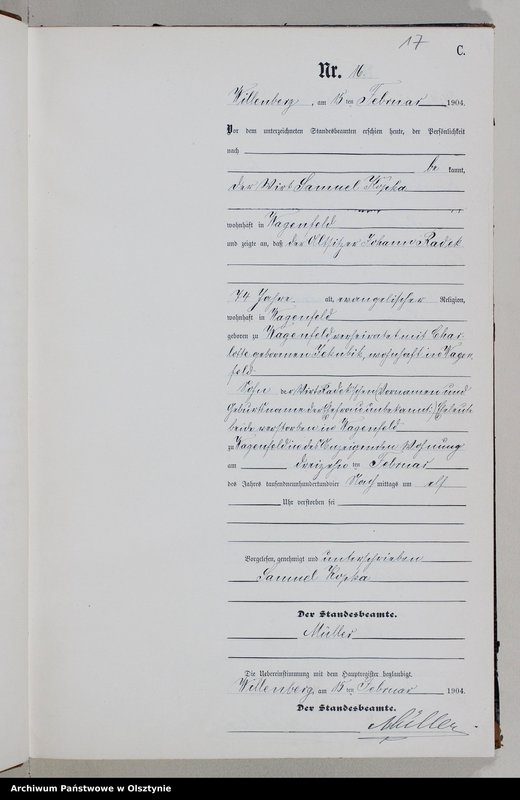 17
C.
Nr. 16
Willenberg, am 15 ten Februar 1904.
Vor dem unterzeichneten Standesbeamten erschien heute, der Persönlichkeit
nach
be kannt,
der Wirt Samuel Kopka
wohnhaft in Wagenfeld
und zeigte an, daß der Altsitzer Johann Radek
74 Jahre alt, evangelischer Religion,
wohnhaft in Wagenfeld
geboren zu Wagenfeld, verheiratet mit Char-
lotte geborenen Jeknbik, wohnhaft in Wagen-
feld
Sohn der Wirt Radekschen (Vornamen und
Geburtsname der Ehefrau unbekannt) Eheleute
beide verstorben in Wagenfeld
zu Wagenfeld in des Anzeigenden Wohnung
am dreizehn ten Februar
des Jahres tausendneunhundertundvier Nach mittags um elf
Uhr verstorben sei
Vorgelesen, genehmigt und unterschrieben
Samuel Kopka
Der Standesbeamte.
Müller
Die Uebereinstimmung mit dem Hauptregister beglaubigt.
Willenberg, am 15 ten Februar 1904.
Der Standesbeamte.
Müller.
Archiwum Państwowe w Olsztynie